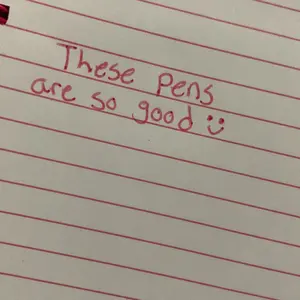 These Pens
are so good ü